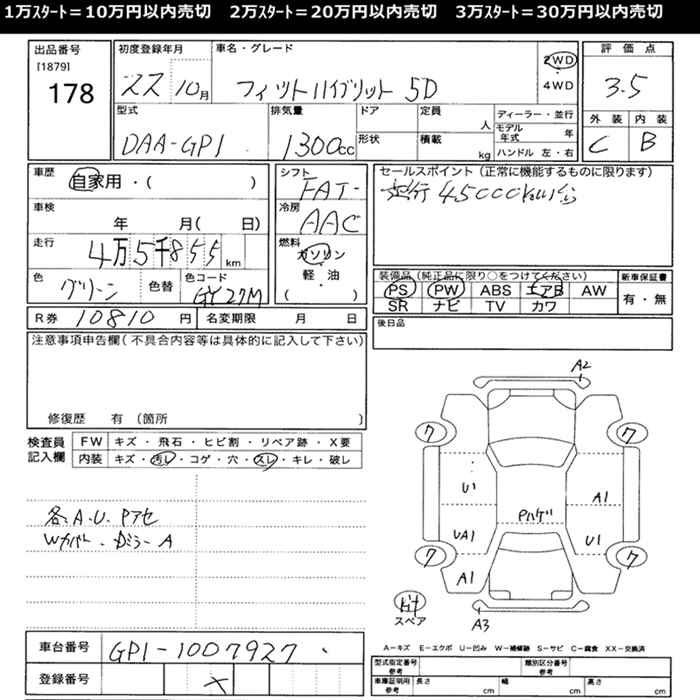 1万ｽﾀｰﾄ＝10万円以内売切　2万ｽﾀｰﾄ＝20万円以内売切　3万ｽﾀｰﾄ＝30万円以内売切
出品番号 初度登録年月 車名・グレード 評価点
[1879] 178
22 10月 フィットハイブリット 5D 2WD 4WD 3.5
型式 排気量 ドア 定員 人 ディーラー・並行 外装 内装
DAA-GP1 1300cc 形状 積載 kg モデル年式 年 ハンドル 左・右 C B
車歴 自家用・( ) シフト FAT セールスポイント (正常に機能するものに限ります)
車検 年 月( 日) 冷房 AAC 走行45000km
走行 4万5千855km 燃料 ガソリン・軽・油 ( )
色 グリーン 色替 色コード GY27M
装備品 (純正品に限り○をつけてください) 新車保証書
PS PW ABS エアB AW 有・無
SR ナビ TV カワ
R券 10810 円 名変期限 月 日 後日品
注意事項申告欄(不具合内容等は具体的に記入して下さい)
修復歴 有 (箇所 )
検査員記入欄 FW キズ・飛石・ヒビ割・リペア跡・X要
内装 キズ・汚レ・コゲ・穴・スレ・キレ・破レ
各A.U.Pアセ
Wカバー・Dミラー A
A2
ワ ワ
U' A1
Pハゲ
UA1 U1
ワ ワ
A1
スペア A3
車台番号 GP1-1007927
登録番号 X
A－キズ E－エクボ U－凹み W－補修跡 S－サビ C－腐食 XX－交換済
型式指定番号 参考 類別区分番号 参考
車庫証明用 参考 長さ cm 幅 cm 高さ cm